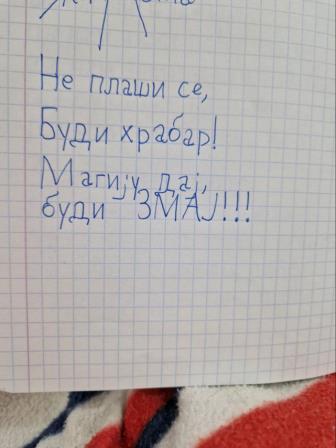 Не плаши се,
Буди храбар!
Магију дај,
буди ЗМАЈ!!!